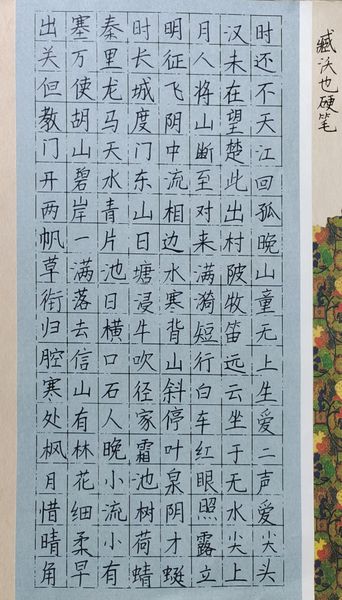 出塞秦时明月汉时
关万里长征人未还
但使龙城飞将在不
教胡马度阴山望天
门山天门中断楚江
开碧水东流至此回
两岸青山相对出孤
帆一片日边来村晚
草满池塘水满陂山
衔落日浸寒漪牧童
归去横牛背短笛无
腔信口吹山行远上
寒山石径斜白云生
处有人家停车坐爱
枫林晚霜叶红于二
月花小池泉眼无声
惜细流树阴照水爱
晴柔小荷才露尖尖
角早有蜻蜓立上头
臧沃也硬笔